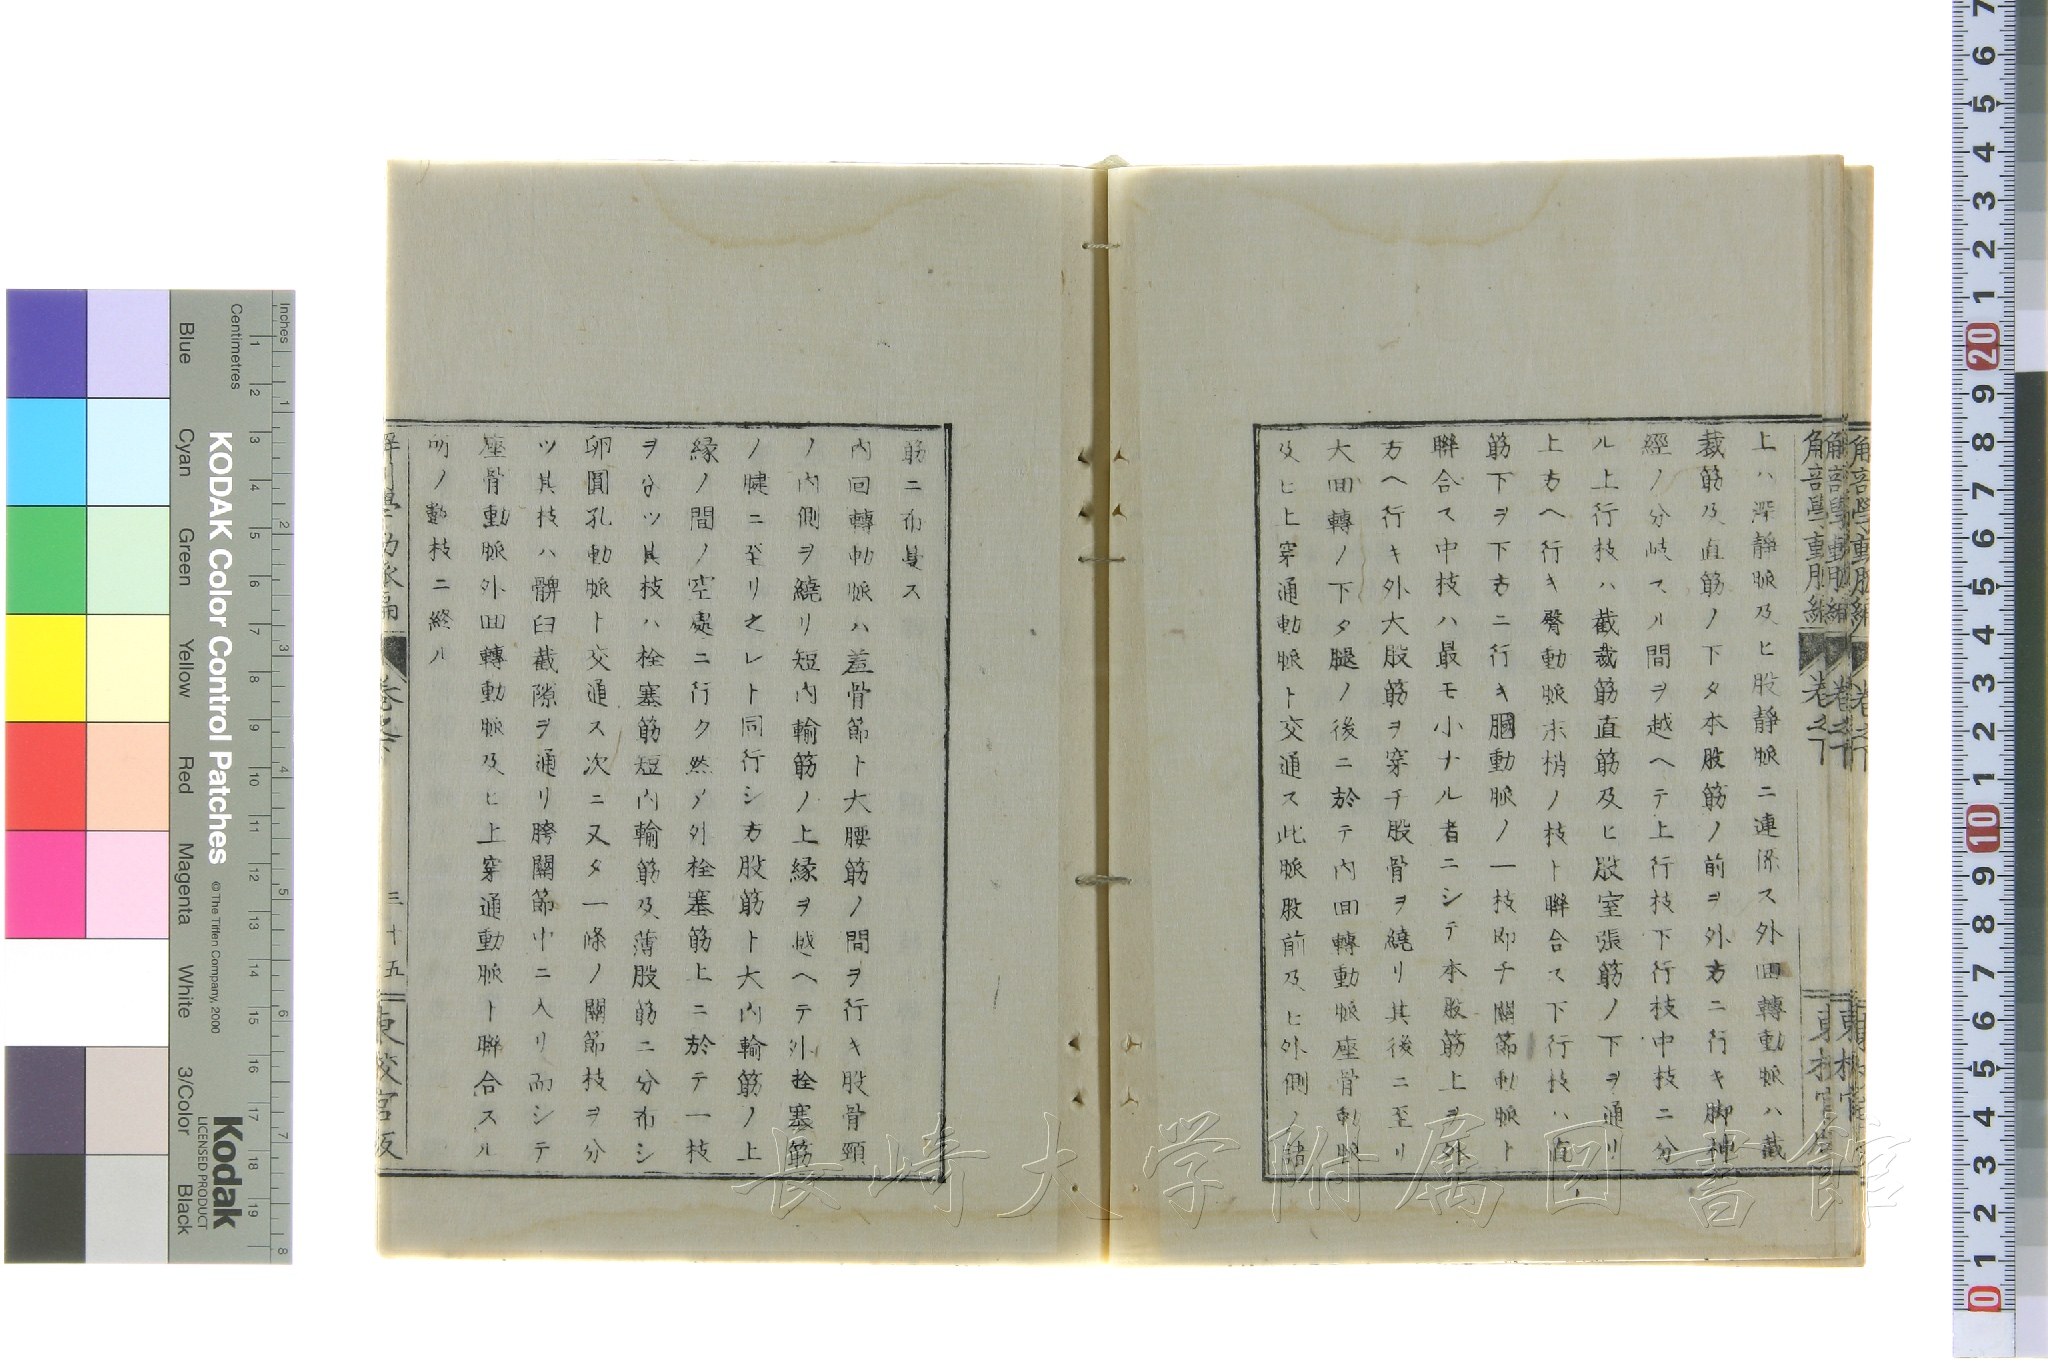 上ハ深靜脈及ヒ股靜脈ニ連係ス外回轉動脈ハ截
裁筋及直筋ノ下タ本股筋ノ前ヲ外方ニ行キ脚神
經ノ分岐スル間ヲ越ヘテ上行枝下行枝中枝ニ分
ル上行枝ハ截裁筋直筋及ヒ股室張筋ノ下ヲ通リ
上方ヘ行キ臀動脈末梢ノ枝ト聯合ス下行枝ハ直
筋下ヲ下方ニ行キ膕動脈ノ一枝即チ關節動脈ト
聯合ス中枝ハ最モ小ナル者ニシテ本股筋上ヲ外
方ヘ行キ外大股筋ヲ穿チ股骨ヲ繞リ其後ニ至リ
大回轉ノ下タ腿ノ後ニ於テ内回轉動脈座骨動脈
及ヒ上穿通動脈ト交通ス此脈股前及ヒ外側ノ諸
筋ニ布蔓ス
内回轉動脈ハ羞骨節ト大腰筋ノ間ヲ行キ股骨頸
ノ内側ヲ繞リ短内輸筋ノ上縁ヲ越ヘテ外栓塞筋
ノ腱ニ至リ之レト同行シ方股筋ト大内輸筋ノ上
縁ノ間ノ空處ニ行ク然メ外栓塞筋上ニ於テ一枝
ヲ分ツ其枝ハ栓塞筋短内輸筋及薄股筋ニ分布シ
卵圓孔動脈ト交通ス次ニ又タ一條ノ關節枝ヲ分
ツ其枝ハ髀臼截隙ヲ通リ胯關節中ニ入リ而シテ
座骨動脈外回轉動脈及ヒ上穿通動脈ト聯合スル
所ノ數枝ニ終ル
三十五
長崎大学附属図書館
KODAK Color Control Patches
© The Tiffen Company, 2000
Kodak
LICENSED PRODUCT
Inches
Centimetres
Blue
Cyan
Green
Yellow
Red
Magenta
White
3/Color
Black